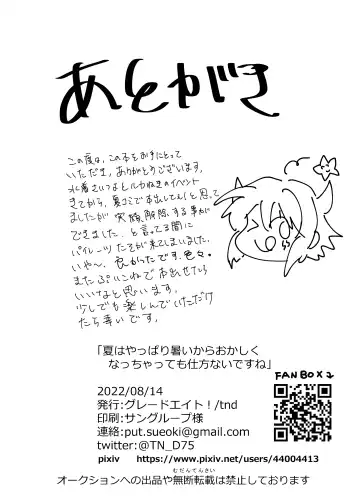 あとがき
この度は、この本をお手にとって
いただき、ありがとうございます。
水着さいつよとルカねきのイベント
きてから、夏コミで本出してぇ!と思って
ましたが 実装、解除、する事が
できました。と言ってる間に
パイレーツ たそが来てしまいました。
いや〜、良かったです。色々。
またふぃこねで本出せたら
いいなと思います。
少しでも楽しんでいただけ
たら幸いです。
「夏はやっぱり暑いからおかしく
なっちゃっても仕方ないですね」
FANBOX↓
2022/08/14
発行:グレードエイト!/tnd
印刷:サングループ様
連絡:put.sueoki@gmail.com
twitter:@TN_D75
pixiv https://www.pixiv.net/users/44004413
むだんてんさい
オークションへの出品や無断転載は禁止しております